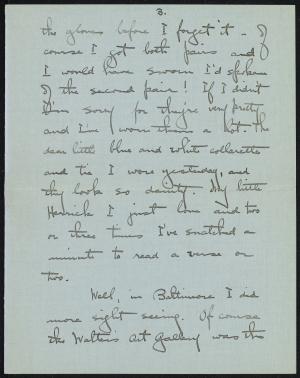 3.
the gloves before I forget it - Of
course I got both pairs and
I would have sworn I'd spoken
of the second pair! If I didn't
I'm sorry for they're very pretty
and I've worn them a lot. The
dear little blue and white collarette
and tie I wore yesterday, and
they look so dainty. My little
Herrick I just love and two
or three times I've snatched a
minute to read a verse or
two.
Well, in Baltimore I did
more sight seeing. Of course
the Walters Art Gallery was the